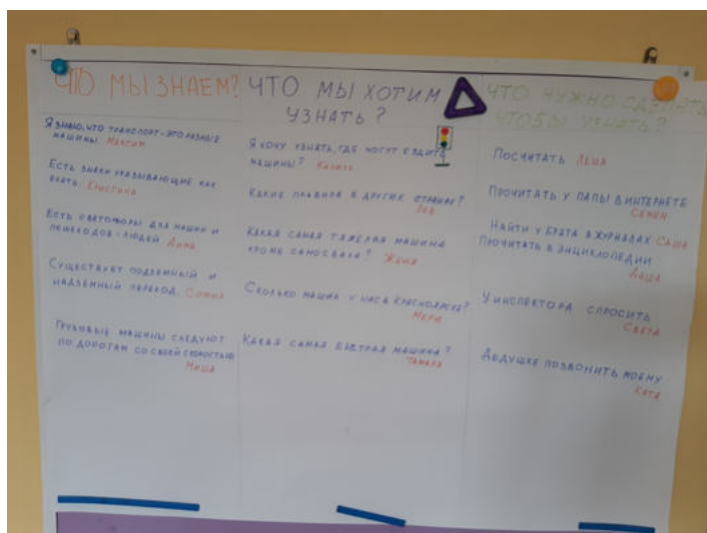 ЧТО МЫ ЗНАЕМ?
Я ЗНАЮ, ЧТО ТРАНСПОРТ - ЭТО РАЗНЫЕ
МАШИНЫ. Максим
ЕСТЬ ЗНАКИ УКАЗЫВАЮЩИЕ КАК
ЕХАТЬ. Кристина
ЕСТЬ СВЕТОФОРЫ ДЛЯ МАШИН И
ПЕШЕХОДОВ - ЛЮДЕЙ Анна
СУЩЕСТВУЕТ ПОДЗЕМНЫЙ И
НАДЗЕМНЫЙ ПЕРЕХОД. София
ГРУЗОВЫЕ МАШИНЫ СЛЕДУЮТ
ПО ДОРОГАМ СО СВОЕЙ СКОРОСТЬЮ
Миша
ЧТО МЫ ХОТИМ
УЗНАТЬ?
Я ХОЧУ УЗНАТЬ, ГДЕ МОГУТ ЕЗДИТЬ
МАШИНЫ?
КАКИЕ ПРАВИЛА В ДРУГИХ СТРАНАХ?
Лев
КАКАЯ САМАЯ ТЯЖЕЛАЯ МАШИНА
КРОМЕ САМОСВАЛА? Женя
СКОЛЬКО МАШИН У НАС В КРАСНОЯРСКЕ?
Мери
КАКАЯ САМАЯ БЫСТРАЯ МАШИНА?
Тамара
ЧТО НУЖНО СДЕЛАТЬ
ЧТОБЫ УЗНАТЬ?
ПОСЧИТАТЬ Лена
ПРОЧИТАТЬ У ПАПЫ В ИНТЕРНЕТЕ
Семен
НАЙТИ У БРАТА В ЖУРНАЛАХ Саша
ПРОЧИТАТЬ В ЭНЦИКЛОПЕДИИ
Даша
У ИНСПЕКТОРА СПРОСИТЬ
Света
ДЕДУШКЕ ПОЗВОНИТЬ МОЕМУ
Катя